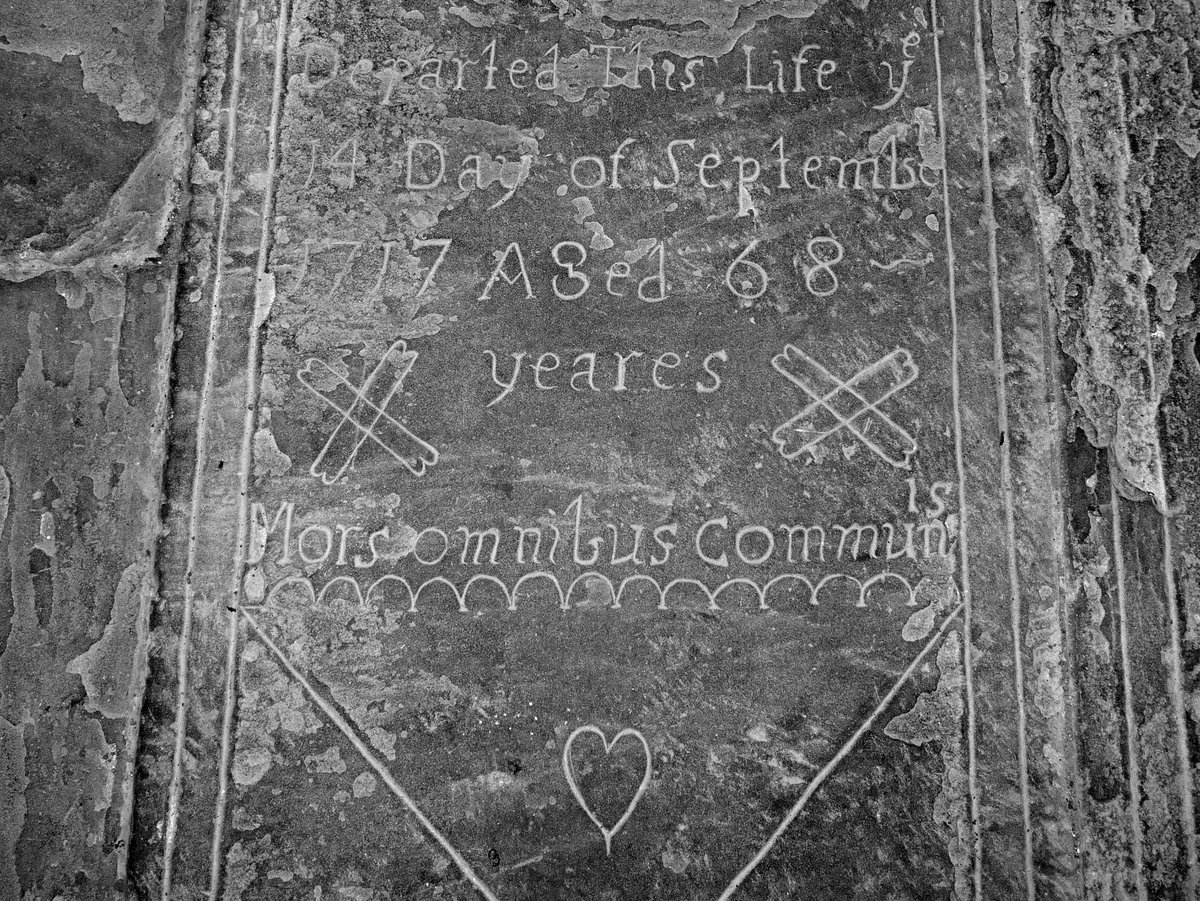 Departed This Life yͤ
14 Day of Septembe
1717 Aged 68
yeares
Mors omnibus Communis